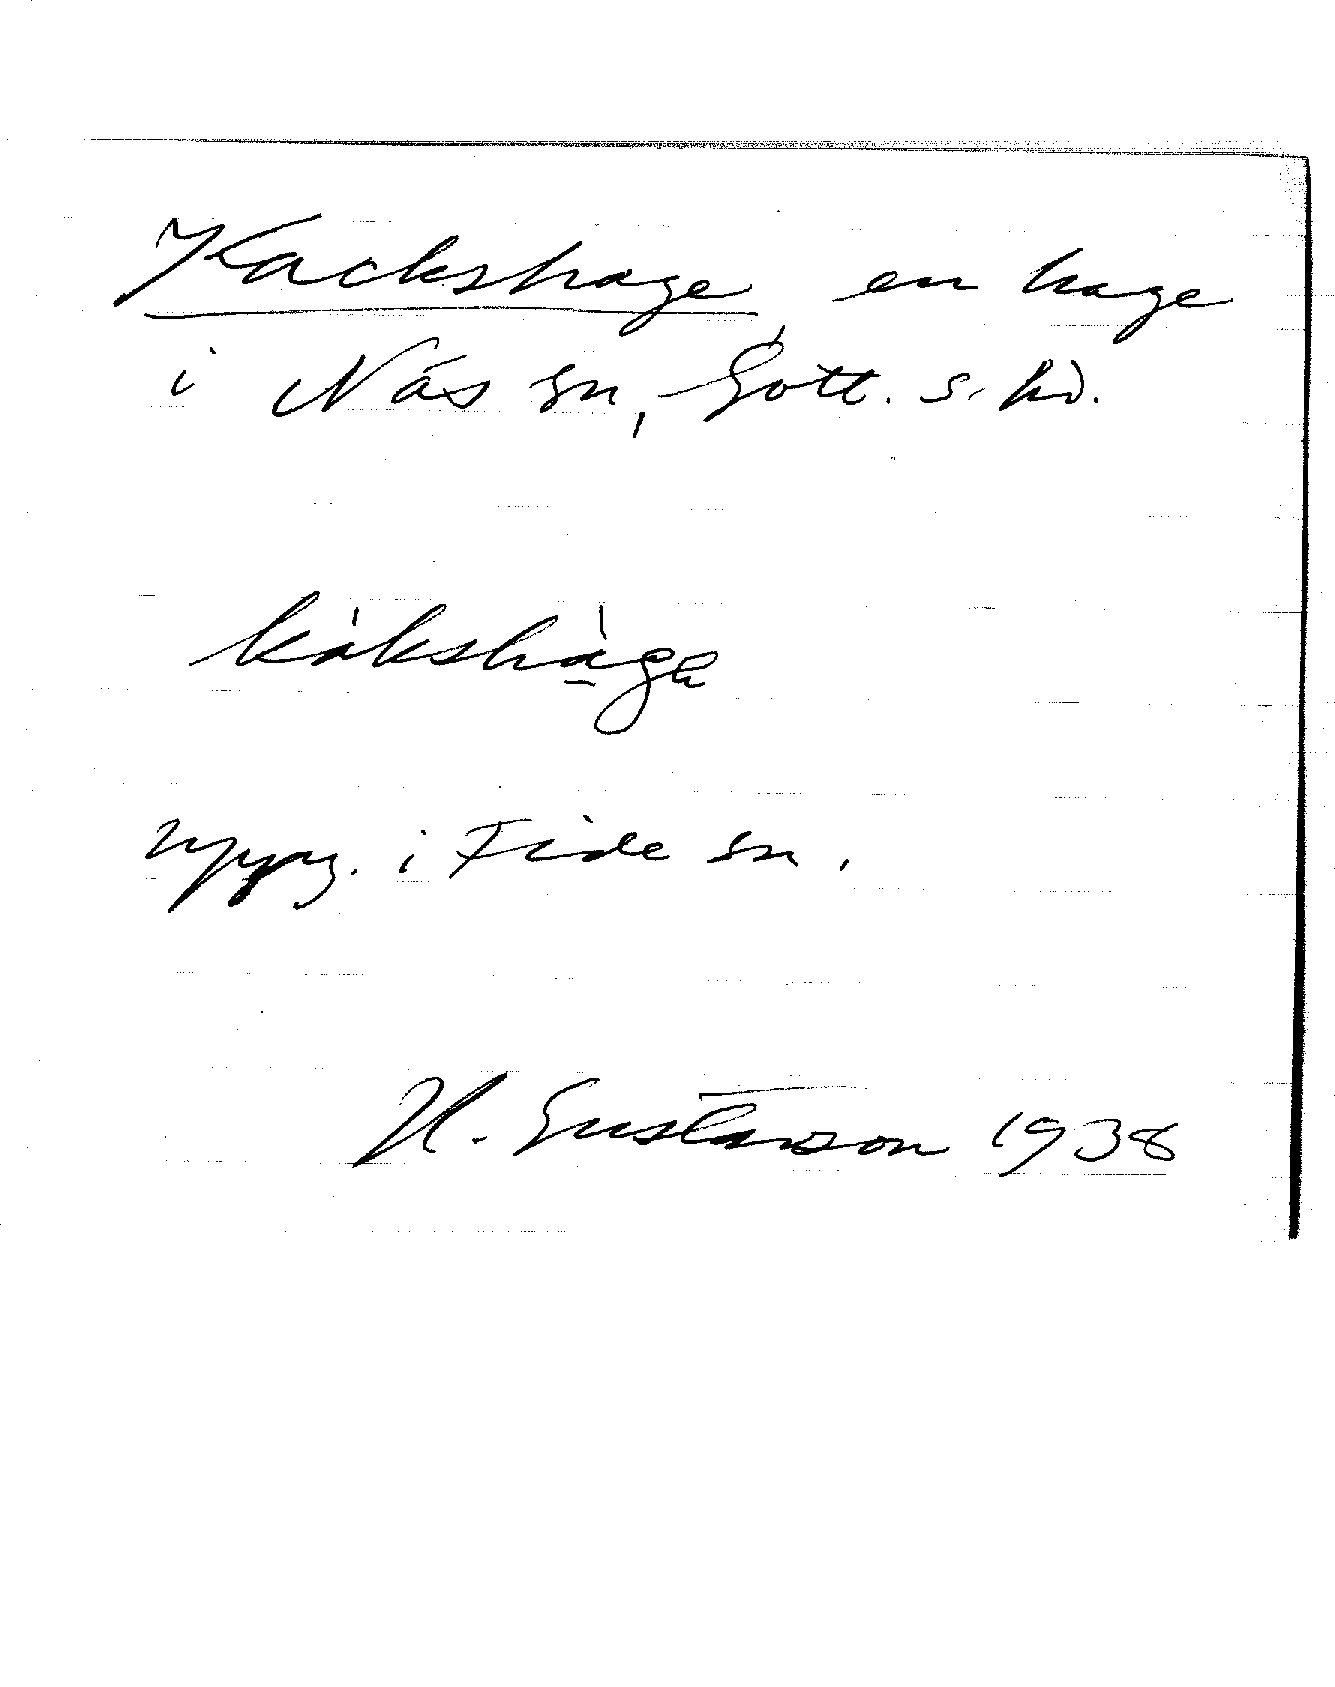 Kackshage en hage
i Näs sn, Gotl. s. hd.
kákshàgɐ
uppg. i Fide sn.
H. Gustavson 1938